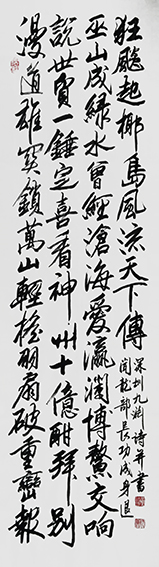 漫道雄關鎖萬山輕搖羽扇破重巒報
說世貿一錘定喜看神州十億酣拜別
巫山成綠水曾經滄海愛瀛瀾博鰲交响
狂飚起椰島風流天下傳
聞龍部長功成身退
深圳九淵詩并書